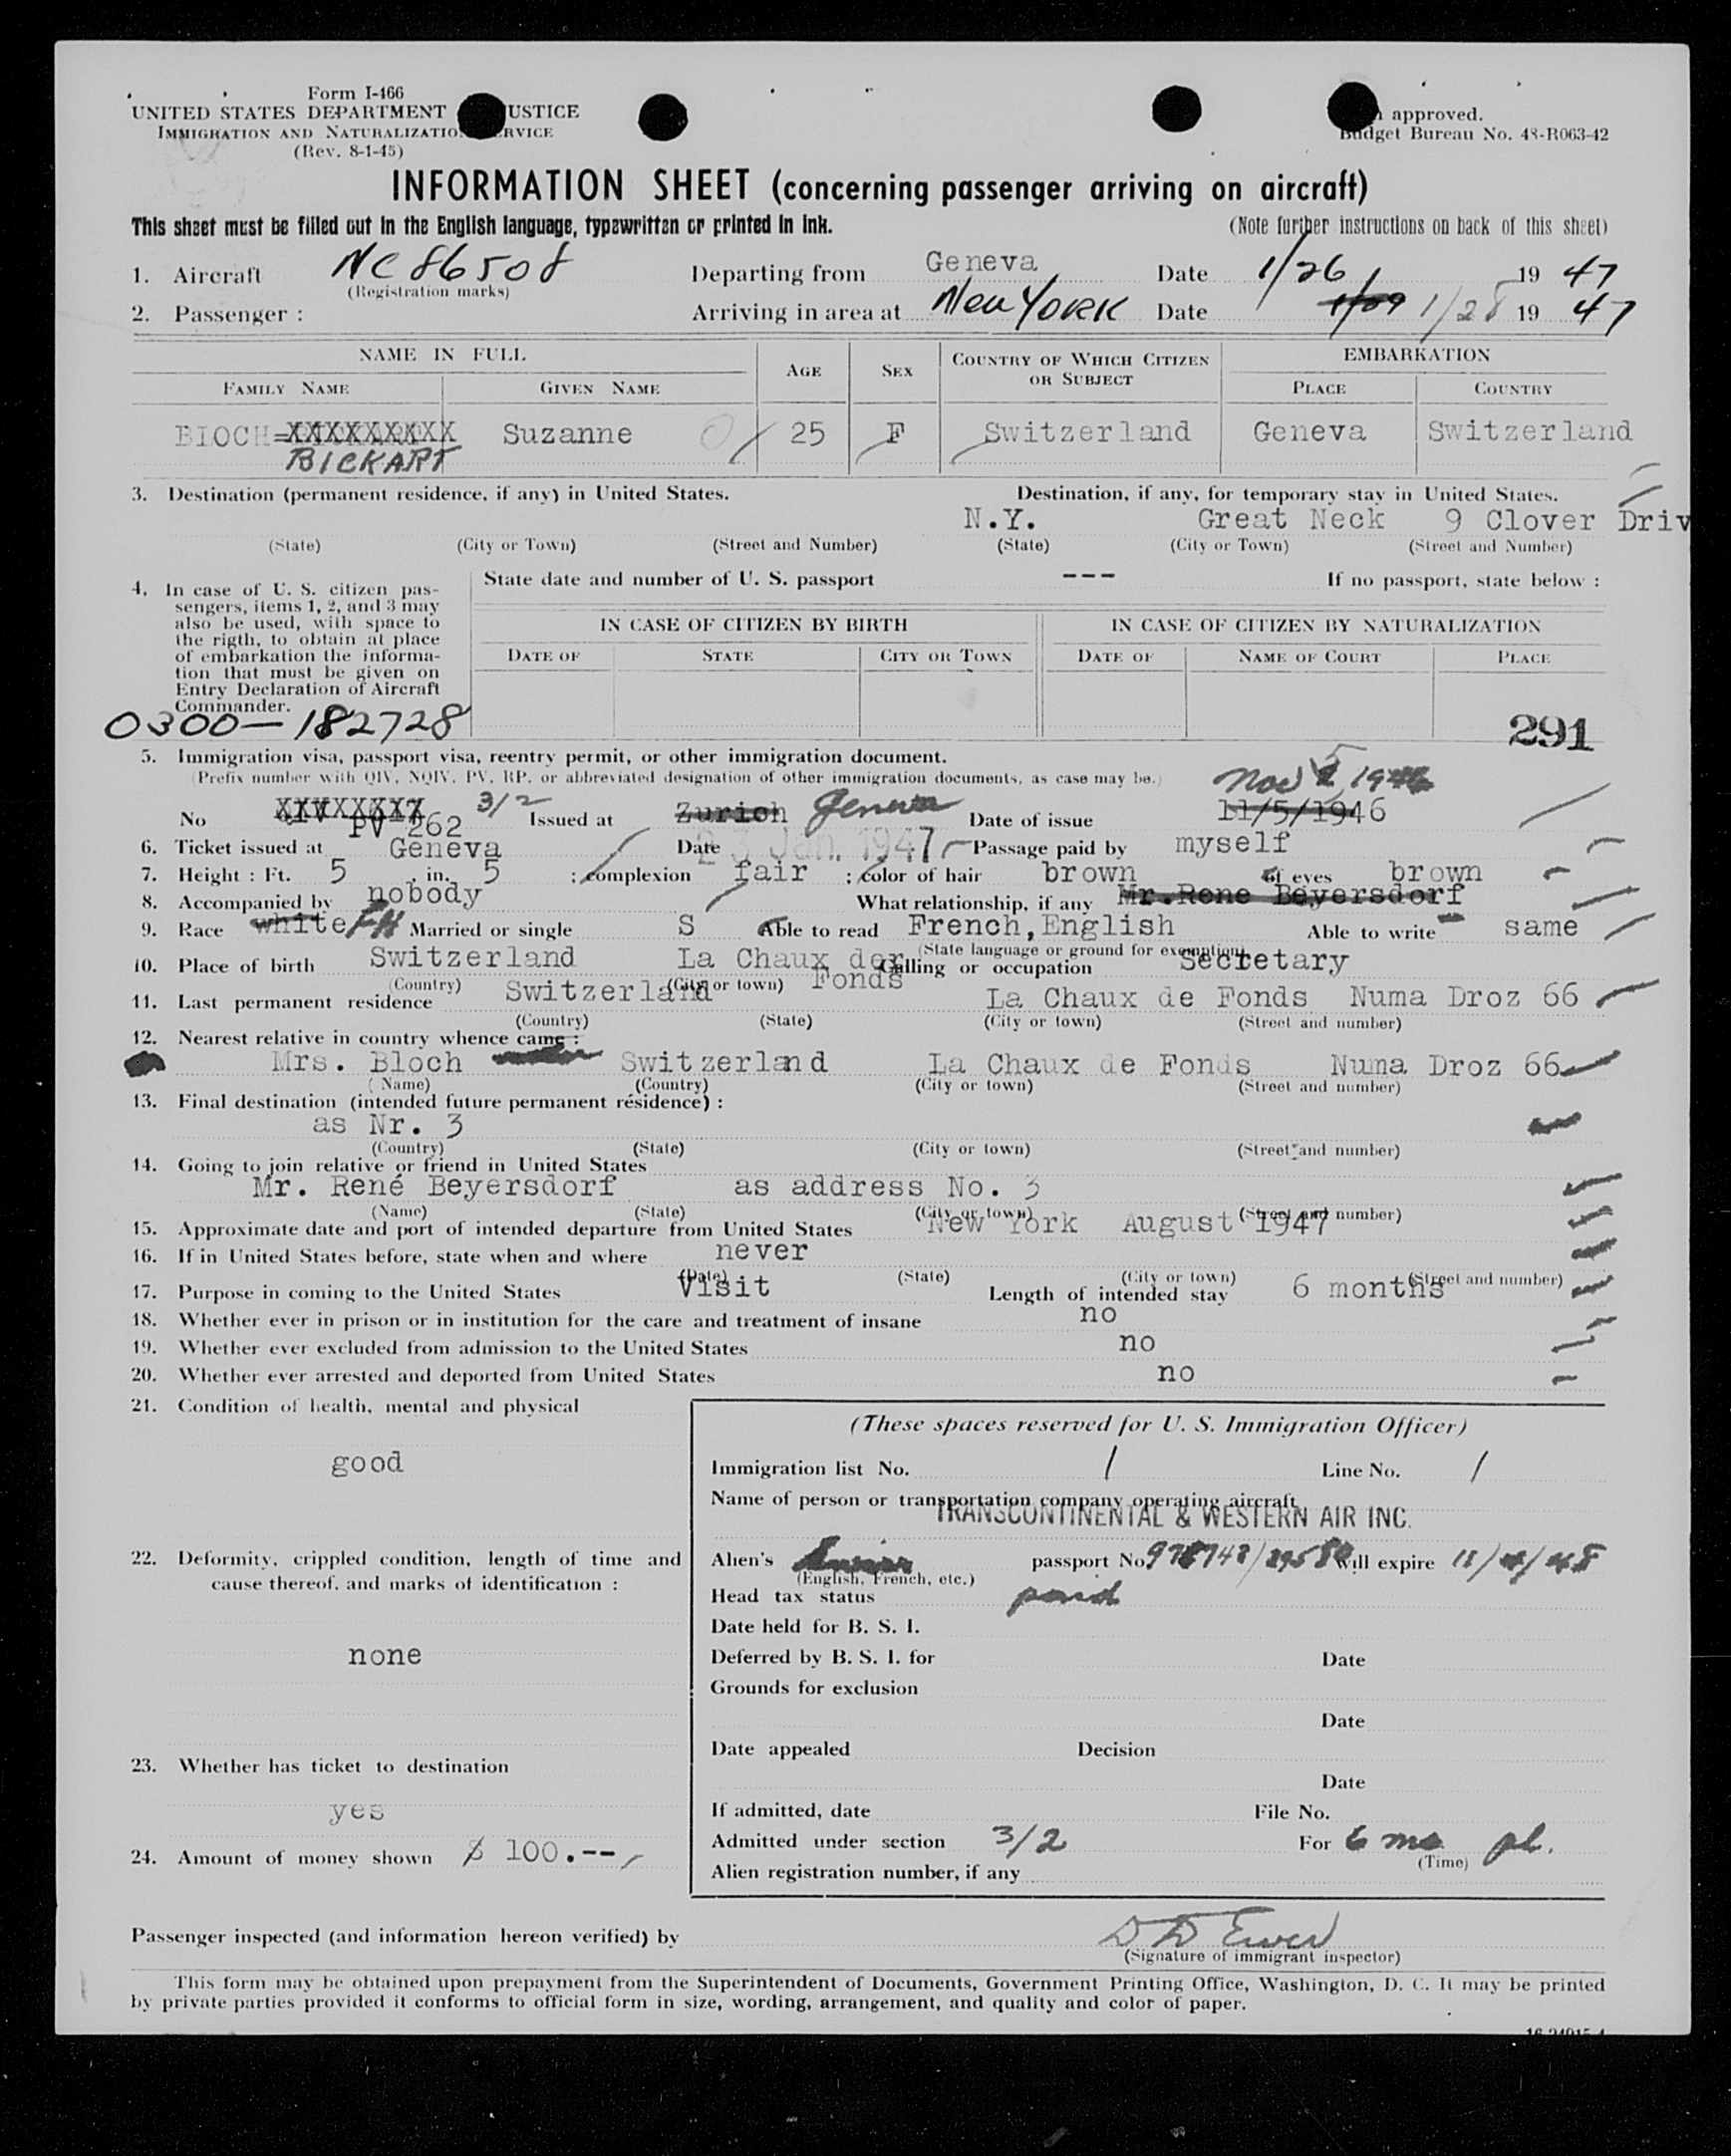 Form I-466
UNITED STATES DEPARTMENT USTICE
IMMIGRATION AND NATURALIZATIO RVICE
(Rev. 8-1-45)
approved.
Budget Bureau No. 43-R063-42
INFORMATION SHEET (concerning passenger arriving on aircraft)
This sheet must be filled out in the English language, typewritten or printed in ink. (Note further instructions on back of this sheet)
1. Aircraft NC 86508 Departing from Geneva Date 1/26 19 47
(Registration marks)
2. Passenger : Arriving in area at New YORK Date 1/28 19 47
NAME IN FULL AGE SEX COUNTRY OF WHICH CITIZEN OR SUBJECT EMBARKATION
FAMILY NAME GIVEN NAME PLACE COUNTRY
BLOCH=XXXXXXXXX Suzanne 25 F Switzerland Geneva Switzerland
BICKART
3. Destination (permanent residence, if any) in United States. Destination, if any, for temporary stay in United States.
N.Y. Great Neck 9 Clover Driv
(State) (City or Town) (Street and Number) (State) (City or Town) (Street and Number)
4. In case of U. S. citizen pas-
sengers, items 1, 2, and 3 may
also be used, with space to
the rigth, to obtain at place
of embarkation the informa-
tion that must be given on
Entry Declaration of Aircraft
Commander.
State date and number of U. S. passport --- If no passport, state below :
IN CASE OF CITIZEN BY BIRTH IN CASE OF CITIZEN BY NATURALIZATION
DATE OF STATE CITY OR TOWN DATE OF NAME OF COURT PLACE
0300-182728
291
5. Immigration visa, passport visa, reentry permit, or other immigration document.
(Prefix number with QIV, NQIV, PV, RP, or abbreviated designation of other immigration documents, as case may be.)
Nov 5, 1946
No PV 262 3/2 Issued at Zurich Geneva Date of issue 11/5/1946
6. Ticket issued at Geneva Date 23 Jan. 1947 Passage paid by myself
7. Height : Ft. 5 , in. 5 ; complexion fair ; color of hair brown of eyes brown
8. Accompanied by nobody What relationship, if any Mr.Rene Beyersdorf
9. Race white Married or single S Able to read French,English Able to write same
(State language or ground for exemption)
10. Place of birth Switzerland La Chaux der Fonds Calling or occupation Secretary
(Country) (City or town)
11. Last permanent residence Switzerland La Chaux de Fonds Numa Droz 66
(Country) (State) (City or town) (Street and number)
12. Nearest relative in country whence came :
Mrs. Bloch Switzerland La Chaux de Fonds Numa Droz 66
(Name) (Country) (City or town) (Street and number)
13. Final destination (intended future permanent résidence) :
as Nr. 3
(Country) (State) (City or town) (Street and number)
14. Going to join relative or friend in United States
Mr. René Beyersdorf as address No. 3
(Name) (State) (City or town) (Street and number)
15. Approximate date and port of intended departure from United States New York August 1947
16. If in United States before, state when and where never
(Date) (State) (City or town) (Street and number)
17. Purpose in coming to the United States Visit Length of intended stay 6 months
18. Whether ever in prison or in institution for the care and treatment of insane no
19. Whether ever excluded from admission to the United States no
20. Whether ever arrested and deported from United States no
21. Condition of health, mental and physical
good
22. Deformity, crippled condition, length of time and
cause thereof, and marks of identification :
none
23. Whether has ticket to destination
yes
24. Amount of money shown $ 100.--
(These spaces reserved for U. S. Immigration Officer)
Immigration list No. 1 Line No. 1
Name of person or transportation company operating aircraft
TRANSCONTINENTAL & WESTERN AIR INC.
Alien's passport No. will expire
(English, French, etc.)
Head tax status paid
Date held for B. S. I.
Deferred by B. S. I. for Date
Grounds for exclusion
Date
Date appealed Decision
Date
If admitted, date File No.
Admitted under section 3/2 For 6 mo pl.
(Time)
Alien registration number, if any
Passenger inspected (and information hereon verified) by
(Signature of immigrant inspector)
This form may be obtained upon prepayment from the Superintendent of Documents, Government Printing Office, Washington, D. C. It may be printed
by private parties provided it conforms to official form in size, wording, arrangement, and quality and color of paper.